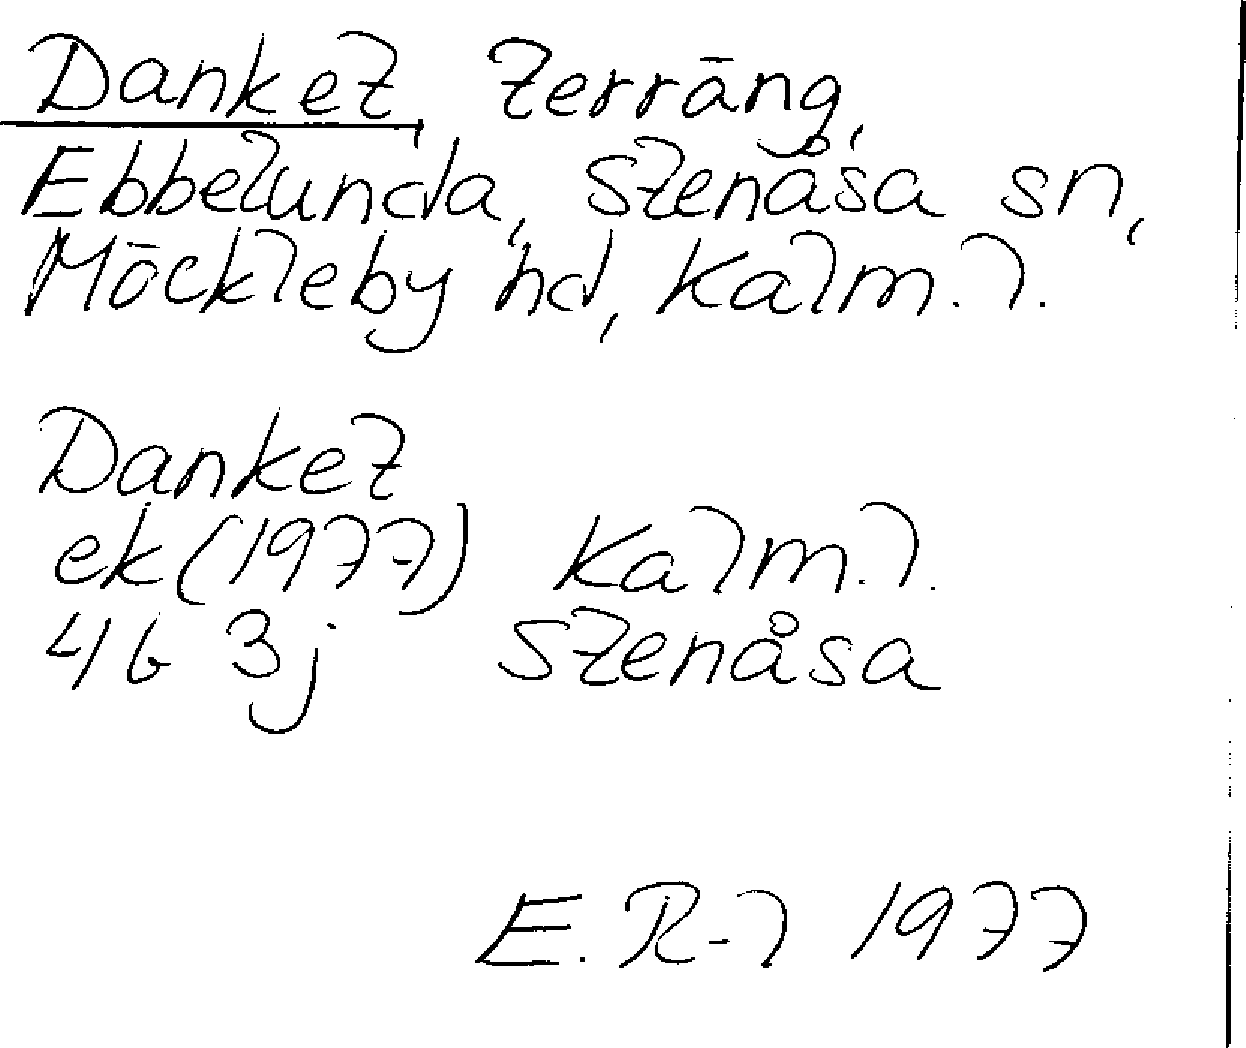 Danket, terräng,
Ebbelunda, Stenåsa sn,
Möckleby hd, Kalm. l.
Danket
ek (1977) Kalm. l.
4G 3j Stenåsa
E. R-l 1977